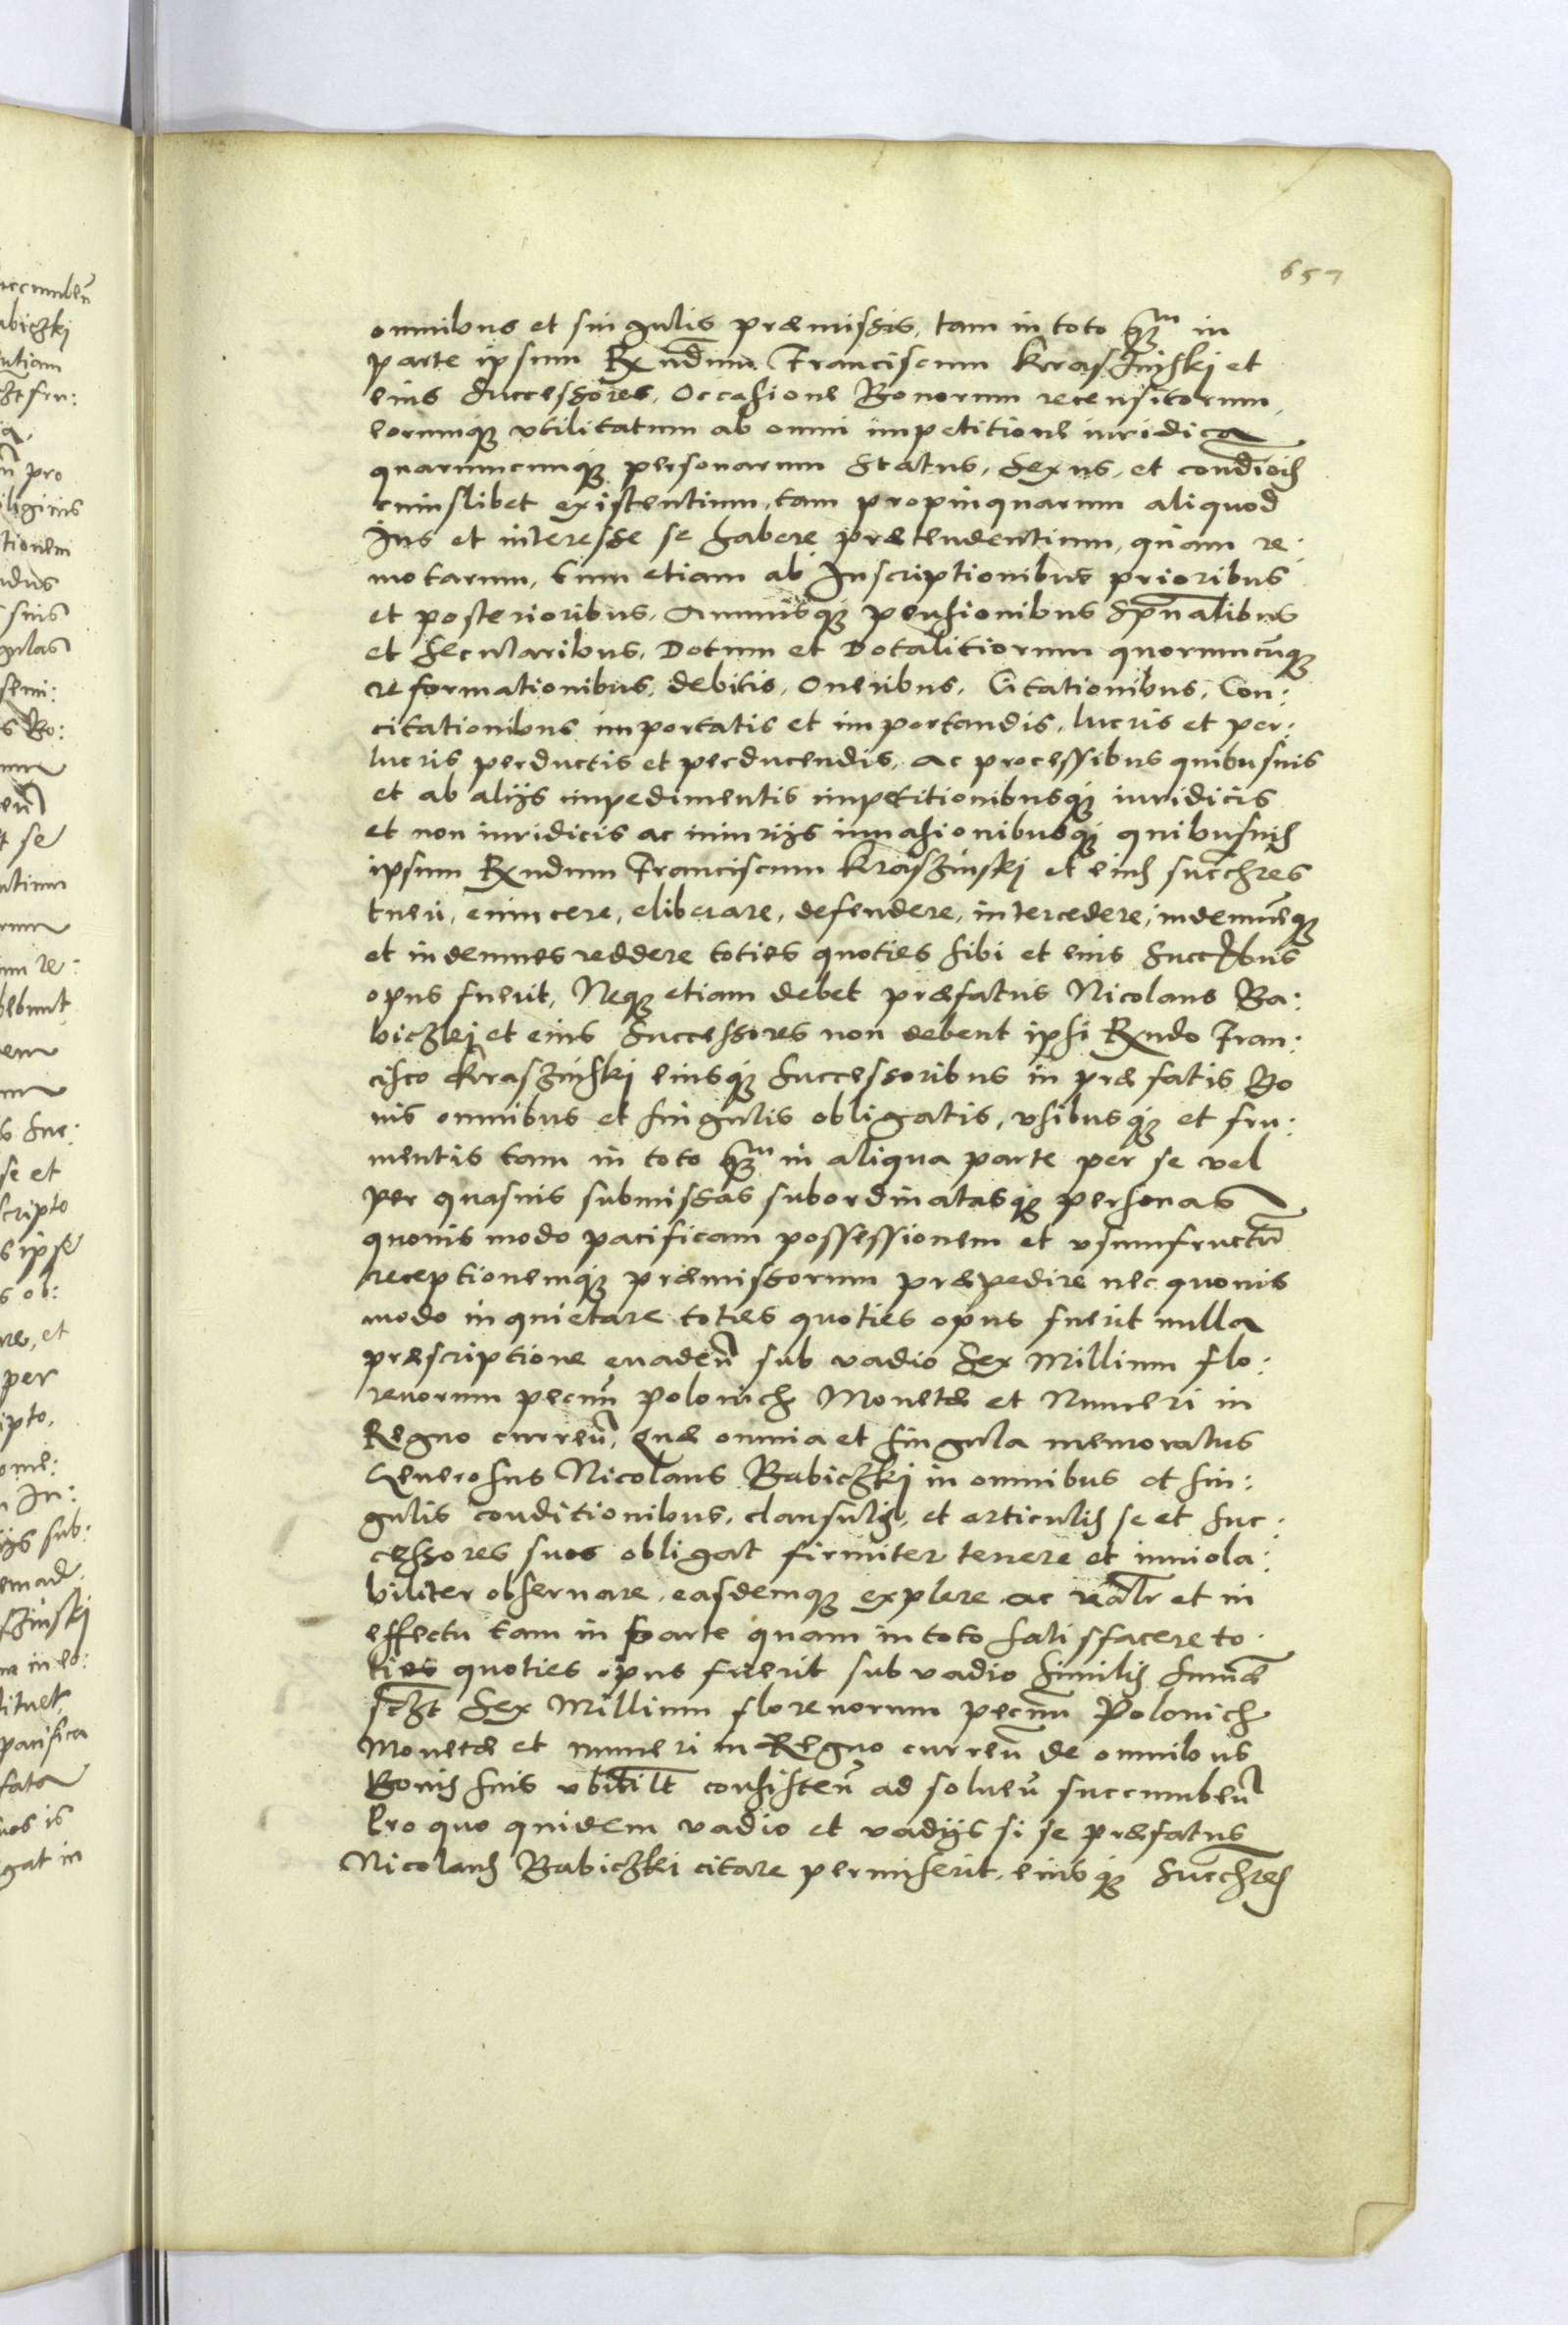 657
omnibus et singulis præmissis, tam in toto q̃m in
parte ipsum Rx̃ndum Franciscum Kraszinskj et
eius Successores, Occasione Bonorum recensitorum,
eorumq; vtilitatum ab omni impetitione iuridica
quarumcunq; personarum Status, Sexus, et condic̃ois
cuiuslibet existentium, tam propinquarum aliquod
Jus et interesse se habere prætendentium, quàm re:
motarum, tum etiam ab Inscriptionibus prioribus
et posterioribus, Annuisq; pensionibus Spũalibus
et Secularibus, Dotum et Dotalitiorum quorumcũq;
reformationibus, debitis, Oneribus, Citationibus, Con:
citationibus importatis et importandis, lucris et per:
lucris perductis et perducendis, ac processibus quibusuis
et ab alijs impedimentis impetitionibusq; iuridicis
et non iuridicis ac iniurijs inuasionibusq; quibusuis
ipsum Rxndum Franciscum Kraszinskj et eius succ̃hres
tueri, euincere, eliberare, defendere, intercedere, indemnẽq;
et indemnes reddere toties quoties sibi et eius Succr̃ibus
opus fuerit, Neq; etiam debet præfatus Nicolaus Ba:
biczkj et eius Successores non debent ipsi Rxndo Fran:
cisco Kraszinskj eiusq; Successoribus in præfatis Bo
nis omnibus et singulis obligatis, vsibusq; et fru:
mentis tam in toto q̃m in aliqua parte per se vel
per quasuis submissas subordinatasq; personas
quouis modo pacificam possessionem et vsumfructũ
receptionemq; præmissorum præpedire nec quouis
modo inquietare toties quoties opus fuerit nulla
præscriptione euadeñ sub vadio Sex Millium flo:
renorum pecuñ Polonich Monetæ et Numeri in
Regno curreñ, Quæ omnia et singula memoratus
Generosus Nicolaus Babiczkj in omnibus et sin:
gulis conditionibus, clausulis, et articulis se et suc:
cessores suos obligat firmiter tenere et inuiola:
biliter obseruare, easdemq; explere ac reãlr et in
effectu tam in parte quam in toto satisfacere to
ties quoties opus fuerit sub vadio similis sum̃æ
sc̃zt Sex Millium florenorum pecuñ Polonich
Monetæ et numeri in Regno curreñ de omnibus
Bonis suis vbiuĩlt consisteñ ad solueñ succumbeñ
Pro quo quidem vadio et vadijs si se præfatus
Nicolaus Babiczki citare permiserit, eiusq; Succ̃hres